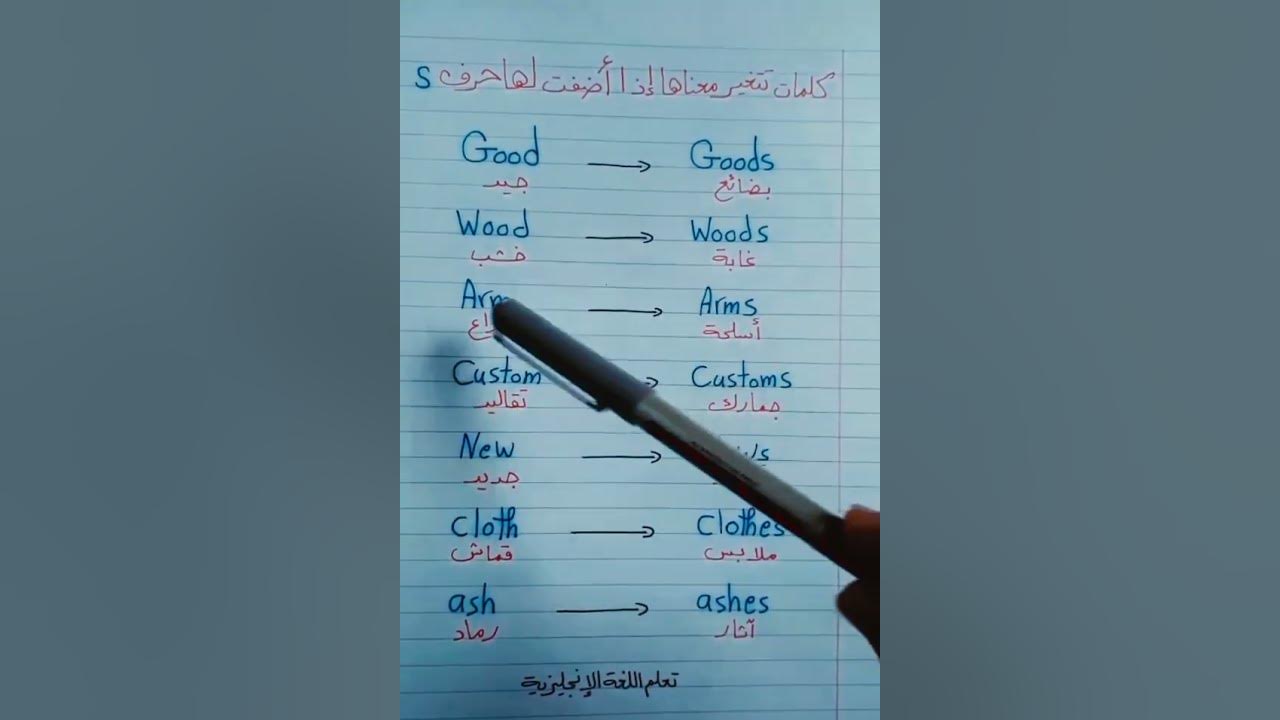 كلمات تتغير معناها إذا أضفت لها حرف S
Good → Goods
جيد بضائع
Wood → Woods
خشب غابة
→ Arms
أسلحة
Custom → Customs
تقاليد جمارك
New →
جديد
Cloth → Clothes
قماش ملابس
ash → ashes
رماد آثار
تعلم اللغة الإنجليزية